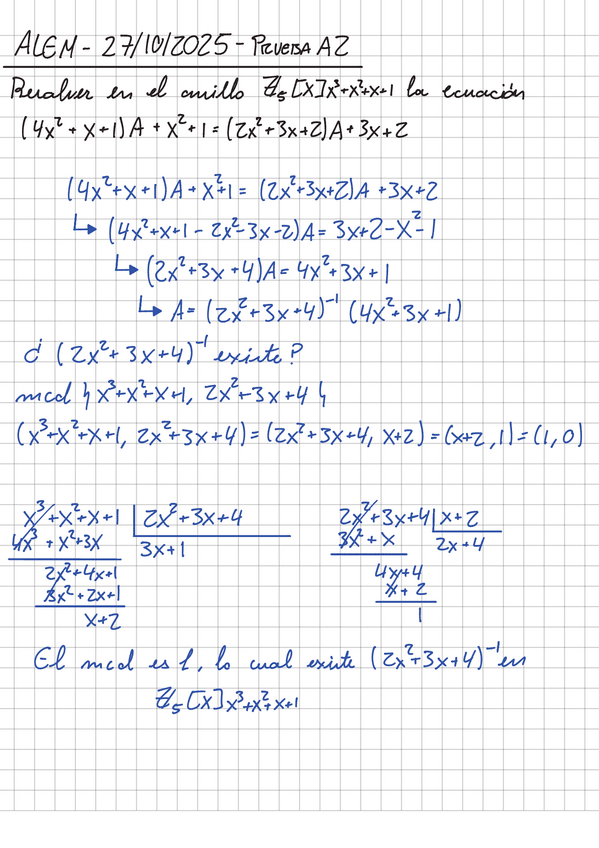 ALEM - 27/10/2025 - PRUEBA A2
Resolver en el anillo ℤ₅[x]x³+x²+x+1 la ecuación
(4x² + x + 1)A + x² + 1 = (2x² + 3x + 2)A + 3x + 2
(4x² + x + 1)A + x² + 1 = (2x² + 3x + 2)A + 3x + 2
↳ (4x² + x + 1 - 2x² - 3x - 2)A = 3x + 2 - x² - 1
↳ (2x² + 3x + 4)A = 4x² + 3x + 1
↳ A = (2x² + 3x + 4)⁻¹ (4x² + 3x + 1)
¿ (2x² + 3x + 4)⁻¹ existe?
mcd { x³ + x² + x + 1, 2x² + 3x + 4 }
(x³ + x² + x + 1, 2x² + 3x + 4) = (2x² + 3x + 4, x + 2) = (x + 2, 1) = (1, 0)
x³ + x² + x + 1 | 2x² + 3x + 4
4x³ + x² + 3x
3x + 1
2x² + 4x + 1
3x² + 2x + 1
x + 2
2x² + 3x + 4 | x + 2
3x² + x
2x + 4
4x + 4
x + 2
1
El mcd es 1, lo cual existe (2x² + 3x + 4)⁻¹ en
ℤ₅[x]x³+x²+x+1